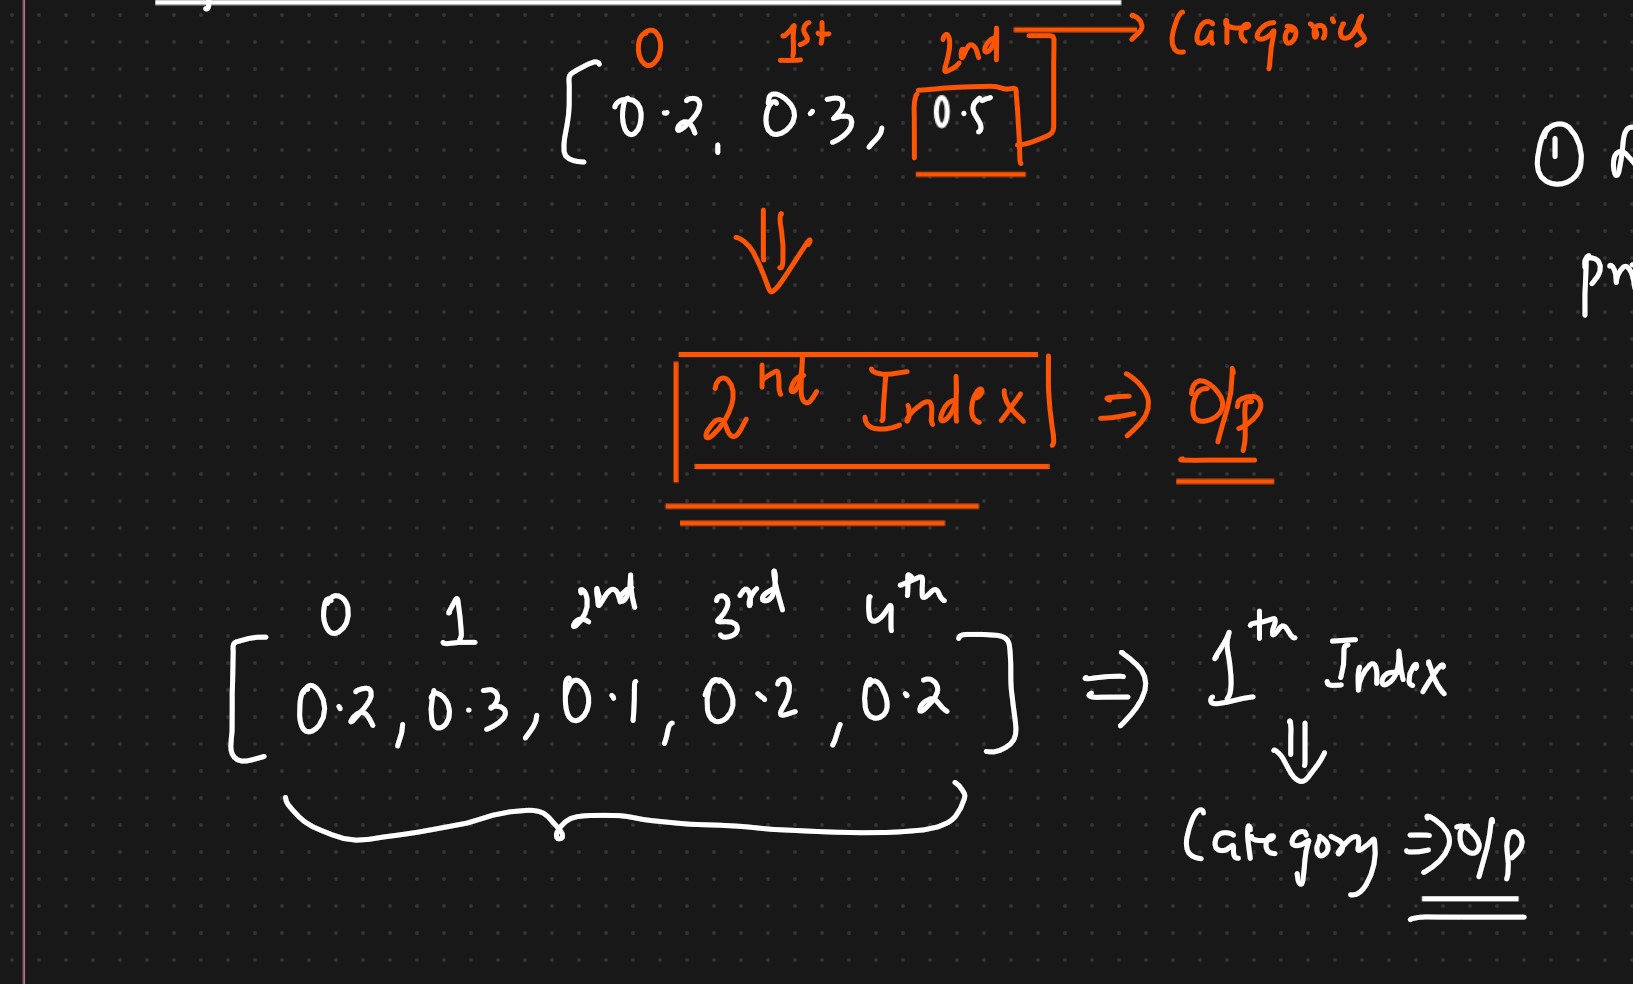 0 1st 2nd → Categories
[ 0.2, 0.3, 0.5
①
⇓
2nd Index ⇒ O/p
0 1 2nd 3rd 4th
[ 0.2, 0.3, 0.1, 0.2, 0.2 ] ⇒ 1th Index
⇓
Category ⇒ O/p